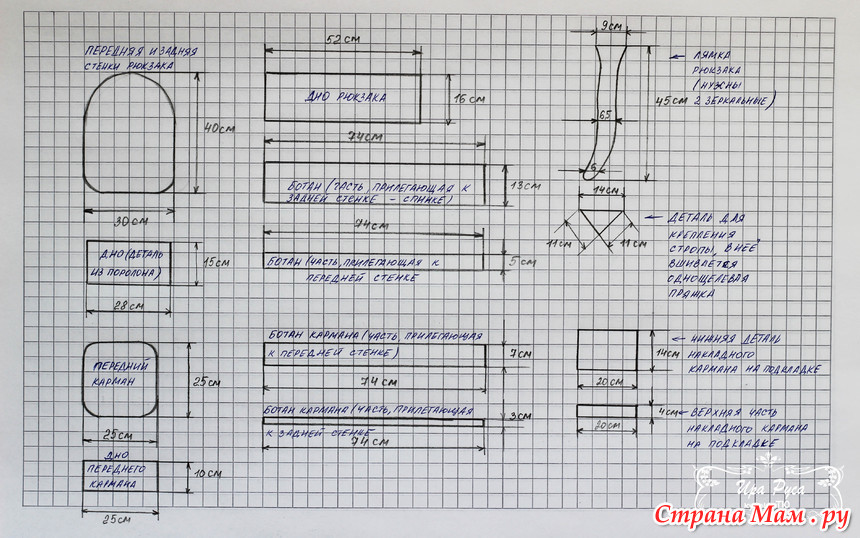 ПЕРЕДНЯЯ И ЗАДНЯЯ
СТЕНКИ РЮКЗАКА
40см
30см
52см
ДНО РЮКЗАКА
16см
74см
БОТАН (ЧАСТЬ, ПРИЛЕГАЮЩАЯ К
ЗАДНЕЙ СТЕНКЕ - СПИНКЕ)
13см
74см
БОТАН (ЧАСТЬ, ПРИЛЕГАЮЩАЯ К
ПЕРЕДНЕЙ СТЕНКЕ
5см
9см
ЛЯМКА
РЮКЗАКА
(НУЖНЫ
2 ЗЕРКАЛЬНЫЕ)
45см
6,5
6
14см
11см
11см
ДЕТАЛЬ ДЛЯ
КРЕПЛЕНИЯ
СТРОПЫ, В НЕЁ
ВШИВАЕТСЯ
ОДНОЩЕЛЕВАЯ
ПРЯЖКА
ДНО (ДЕТАЛЬ
ИЗ ПОРОЛОНА)
15см
28см
ПЕРЕДНИЙ
КАРМАН
25см
25см
ДНО
ПЕРЕДНЕГО
КАРМАНА
10см
25см
БОТАН КАРМАНА (ЧАСТЬ, ПРИЛЕГАЮЩАЯ
К ПЕРЕДНЕЙ СТЕНКЕ)
7см
74см
БОТАН КАРМАНА (ЧАСТЬ, ПРИЛЕГАЮЩАЯ
К ЗАДНЕЙ СТЕНКЕ
3см
74см
НИЖНЯЯ ДЕТАЛЬ
НАКЛАДНОГО
КАРМАНА НА ПОДКЛАДКЕ
14см
20см
4см
ВЕРХНЯЯ ЧАСТЬ
НАКЛАДНОГО КАРМАНА
НА ПОДКЛАДКЕ
20см
Ира Руса
Страна Мам.ру